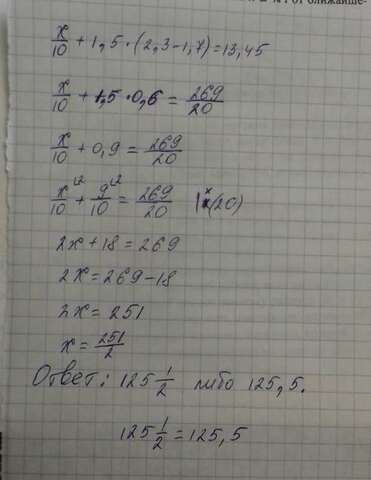 x/10 + 1,5 · (2,3-1,7)=13,45
x/10 + 1,5 · 0,6 = 269/20
x/10 + 0,9 = 269/20
x/10 + 9/10 = 269/20 |x(20)
2x + 18 = 269
2x = 269-18
2x = 251
x = 251/2
Ответ: 125 1/2 либо 125,5.
125 1/2 = 125,5